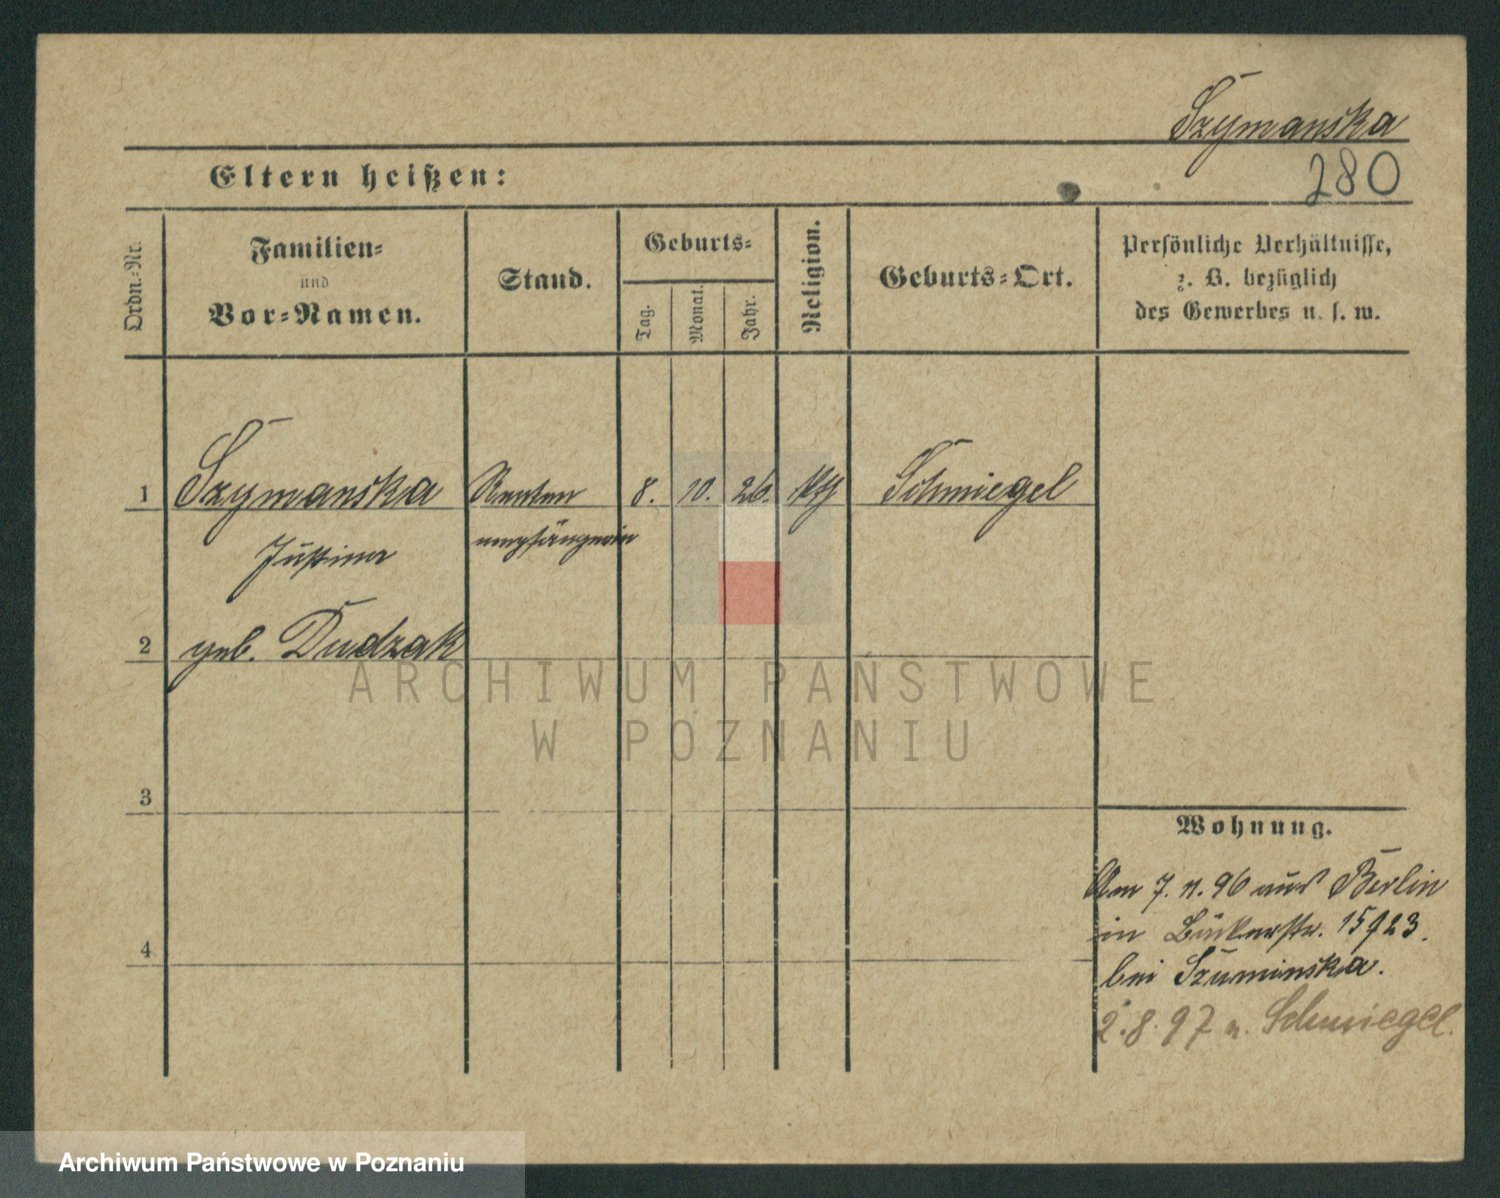 Szymanska
280
Eltern heißen:
Ordn.-Nr.
Familien-
und
Vor-Namen.
Stand.
Geburts-
Tag.
Monat.
Jahr.
Religion.
Geburts-Ort.
Persönliche Verhältnisse,
z. B. bezüglich
des Gewerbes u. s. w.
1 Szymanska Renten 8. 10. 26. kth Schmiegel
empfängerin
Justina
2 geb. Dudzak
ARCHIWUM PAŃSTWOWE
W POZNANIU
3
Wohnung.
4
Am 7. 11. 96 aus Berlin
in Bäckerstr. 15/23.
bei Szuminska.
2.8.97 n. Schmiegel.
Archiwum Państwowe w Poznaniu